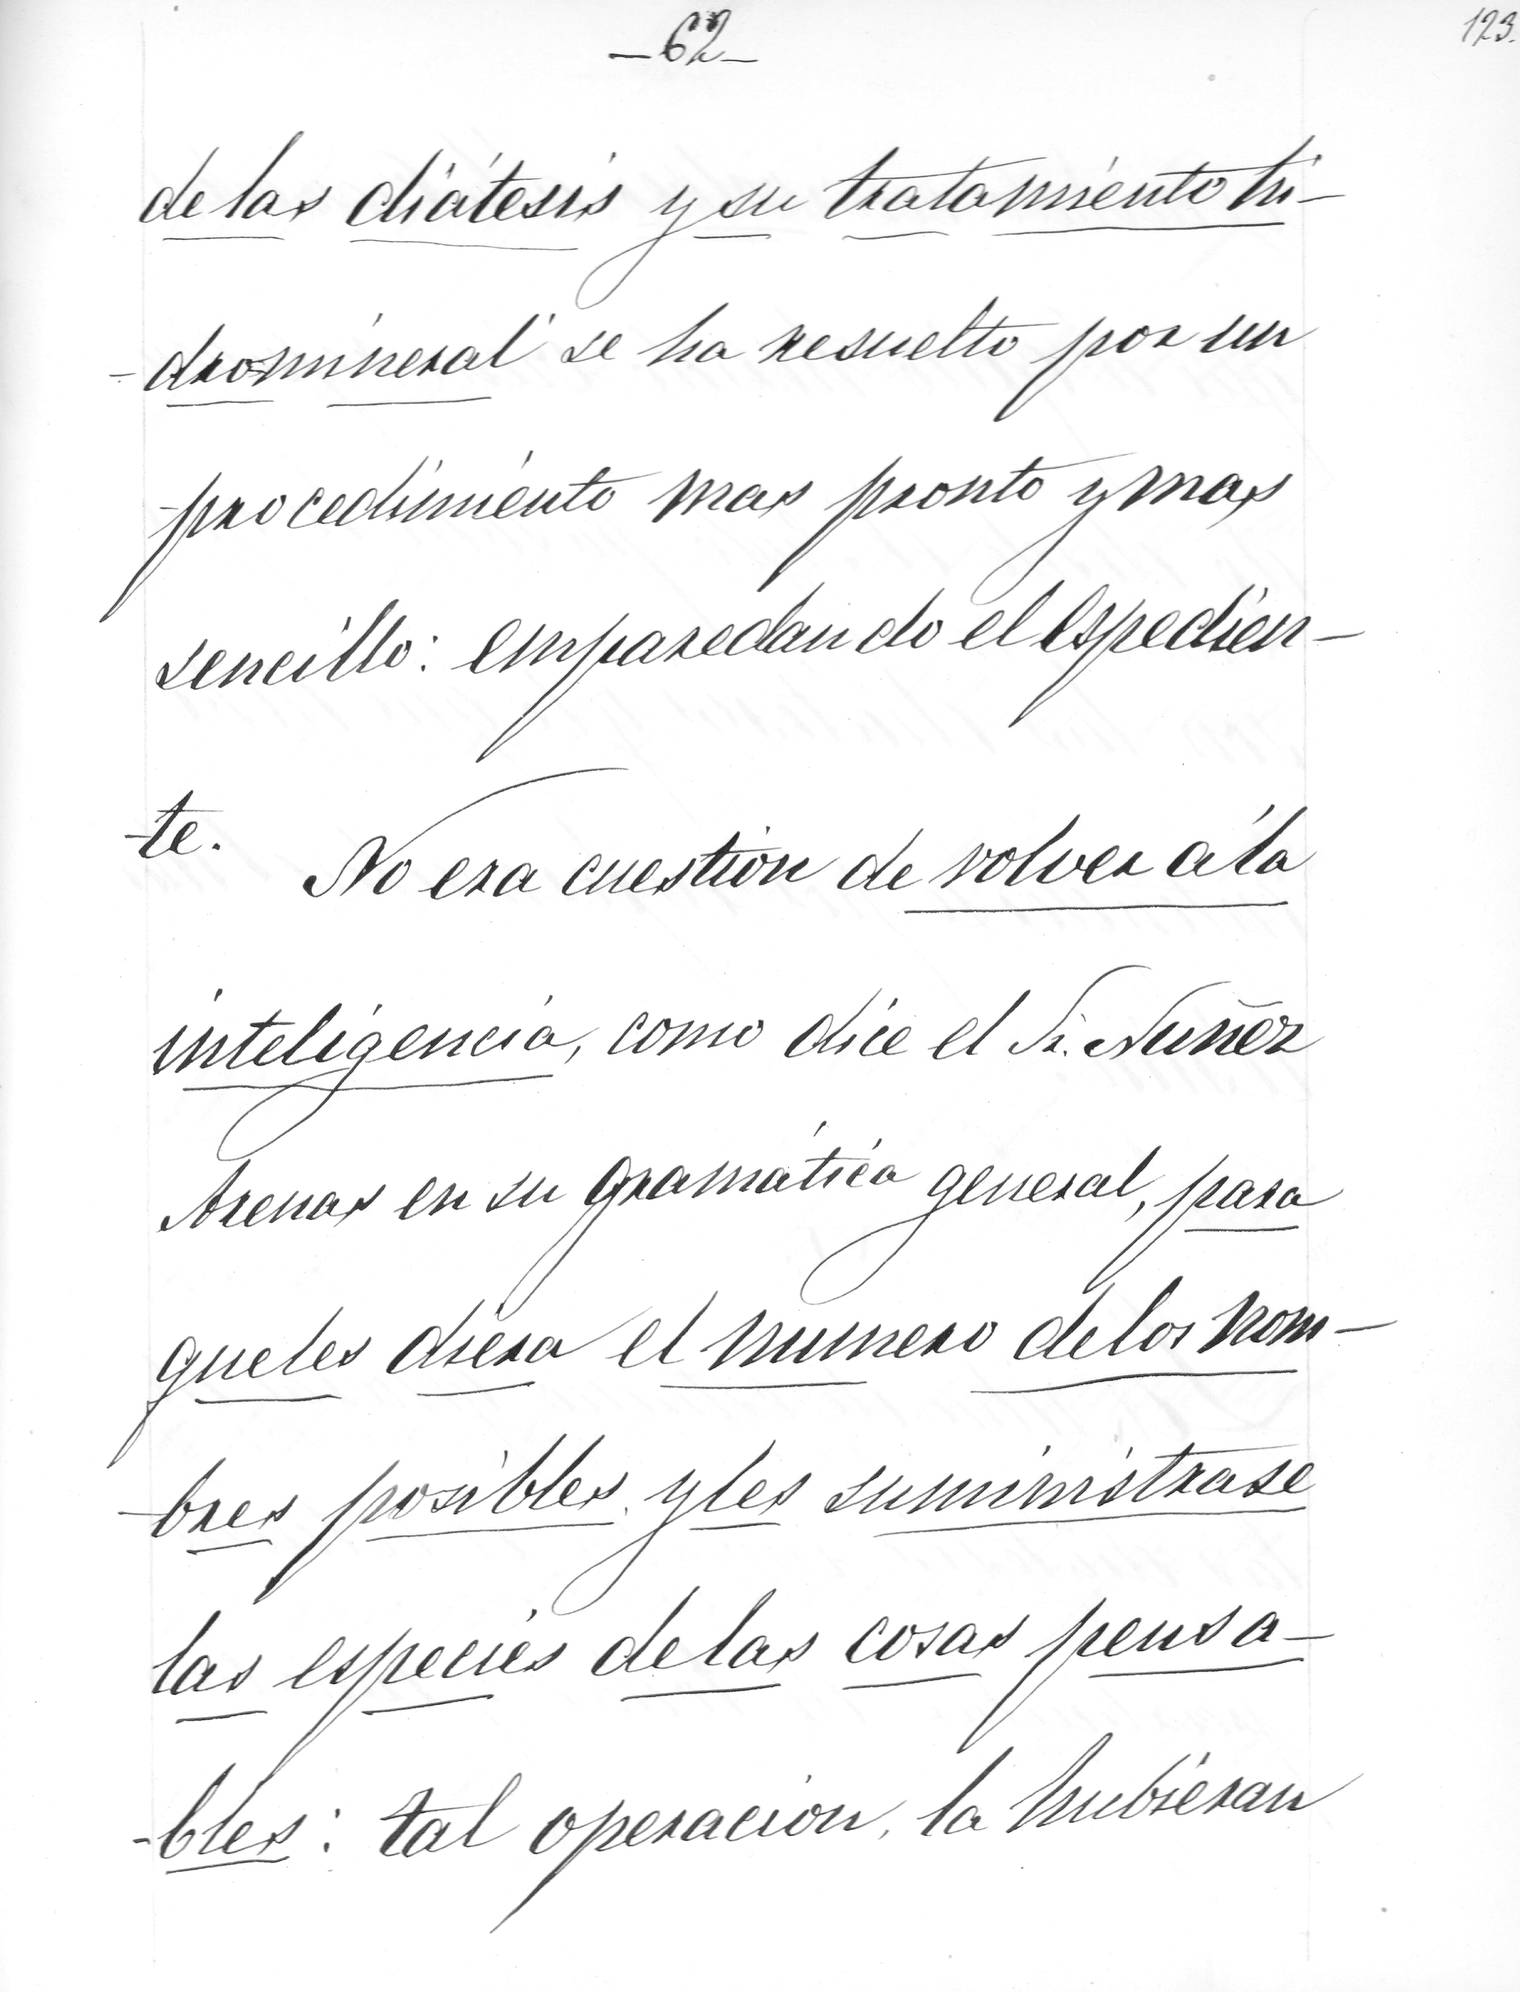 123.
-62-
de las diátesis y su tratamiento hi-
-dromineral se ha resuelto por un
procedimiento mas pronto y mas
sencillo: emparedando el espedien-
-te.
No era cuestion de volver á la
inteligencia, como dice el Sr. Nuñez
Arenas en su gramática general, para
que les diera el numero de los nom-
-bres posibles y les suministrase
las especies de las cosas pensa-
-bles: tal operacion, la hubieran